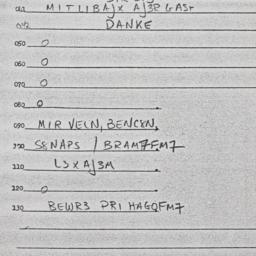 MITLIBAJX AJ3R GAST
DANKE
050 O
060 O
070 O
080 O
090 MIR VELN, BENCEN,
S8NAPS / BRAM7FM7
110 L3XAJ3M
120 O
130 BEWR3 PRI HAGOFM7